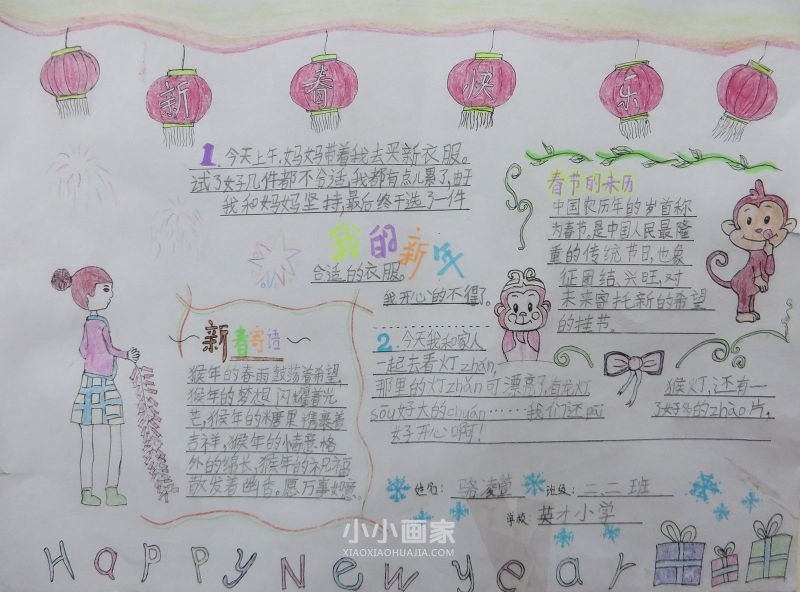 新
春
快
乐
1. 今天上午,妈妈带着我去买新衣服。
试了好几件都不合适,我都有点儿累了,由于
我和妈妈坚持,最后终于选了一件
合适的衣服。
我开心的不得了。
我的新
春节的来历
中国农历年的岁首称
为春节,是中国人民最隆
重的传统节日,也象
征团结、兴旺,对
未来寄托新的希望
的佳节。
新春寄语
猴年的春雨鼓荡着希望,
猴年的梦想闪耀着光
芒,猴年的糖果携裹着
吉祥,猴年的
外的绵长,猴年的祝福
散发着幽香。愿万事如意。
2. 今天我和家人
一起去看灯zhǎn,
那里的灯zhǎn可漂亮了,有龙灯
sōu好大的chuán……我们还pāi
好开心啊!
猴灯,还有一
了好多的zhào片。
姓名: 骆凌萱 班级: 二、二班
学校: 英才小学
小小画家
XIAOXIAOHUAJIA.COM
Happy New year